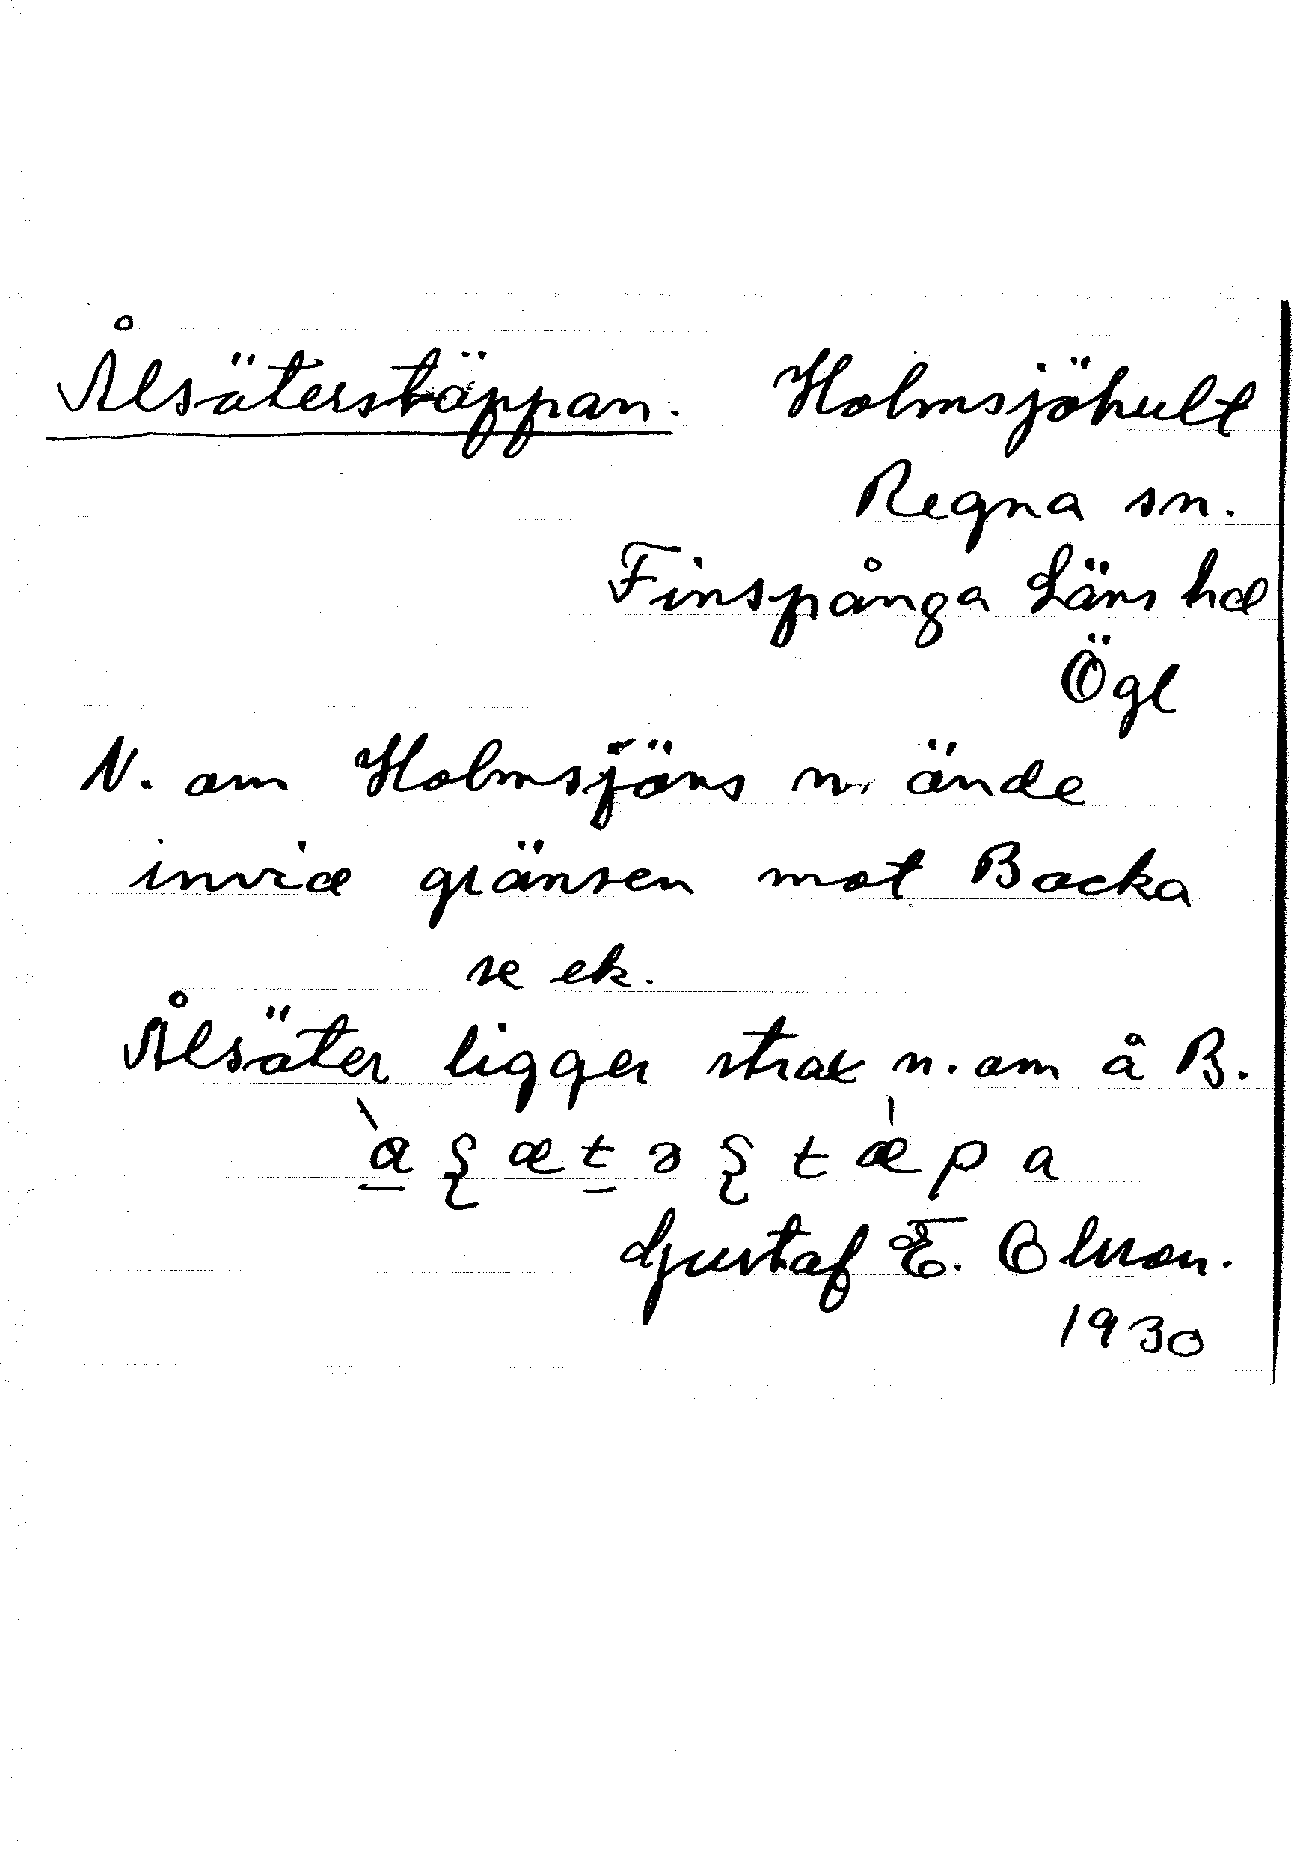 Ålsäterstäppan. Holmsjöhult
Regna sn.
Finspånga Läns hd
Ögl
N. om Holmsjöns n. ände
invid gränsen mot Backa
se ek.
Ålsäter ligger strax n. om å B.
Gustaf E. Olsson.
1930